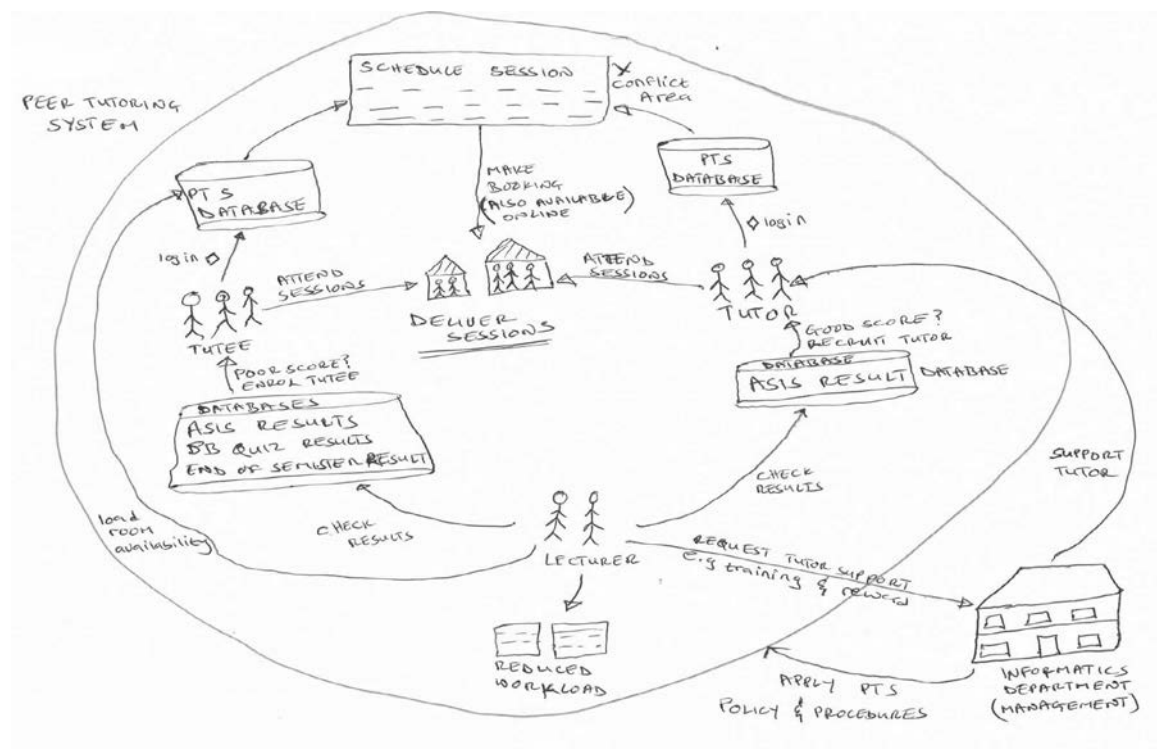 PEER TUTORING
SYSTEM
SCHEDULE SESSION
X
Conflict
Area
PTS
DATABASE
PTS
DATABASE
MAKE
BOOKING
(ALSO AVAILABLE)
ONLINE
login
login
ATTEND
SESSIONS
ATTEND
SESSIONS
TUTEE
DELIVER
SESSIONS
TUTOR
POOR SCORE?
ENROL TUTEE
GOOD SCORE?
RECRUIT TUTOR
DATABASES
ASIS RESULTS
BB QUIZ RESULTS
END OF SEMISTER RESULT
DATABASE
ASIS RESULT
DATABASE
load
room
availability
CHECK
RESULTS
CHECK
RESULTS
SUPPORT
TUTOR
LECTURER
REQUEST TUTOR SUPPORT
e.g training & reward
REDUCED
WORKLOAD
APPLY PTS
POLICY & PROCEDURES
INFORMATICS
DEPARTMENT
(MANAGEMENT)